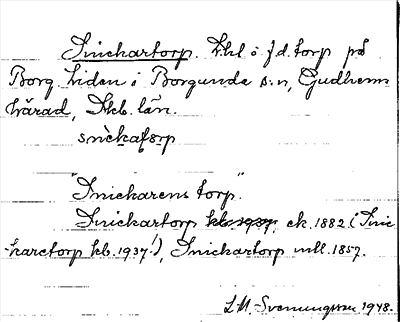 Snickartorp. Lht o. f.d. torp på
Borg Liden i Borgunda s:n, Gudhems
härad, Skb. län.
snèkatorp
"Snickarens torp."
Snickartorp kb. 1937, ek. 1882 (Snic-
karetorp kb. 1937!), Snickartorp mll. 1857.
L.M. Svenungsson 1948.